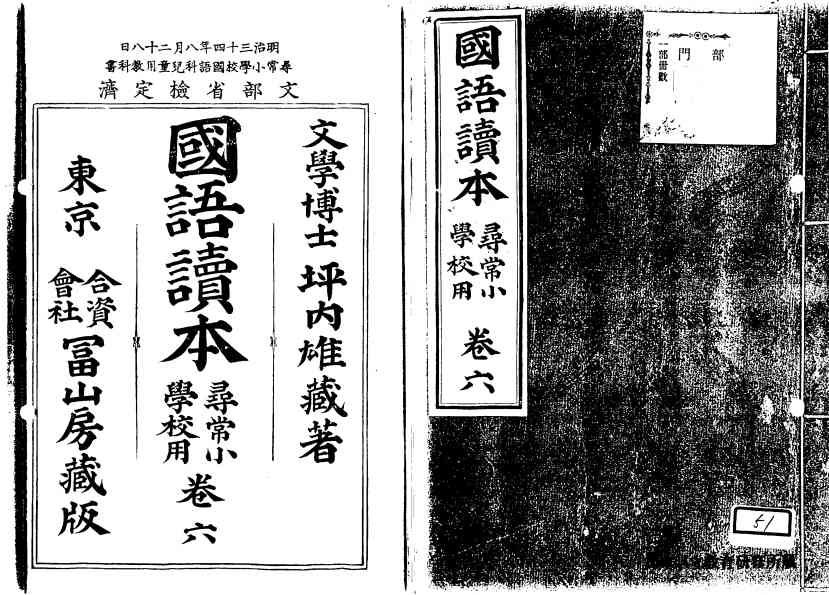 國語讀本
尋常小
學校用
卷六
部
門
一部冊數
51
明治三十四年八月二十八日
尋常小學校國語科兒童用教科書
文部省檢定濟
文學博士 坪內雄藏著
國語讀本
尋常小
學校用
卷六
東京
合資
會社
冨山房藏版